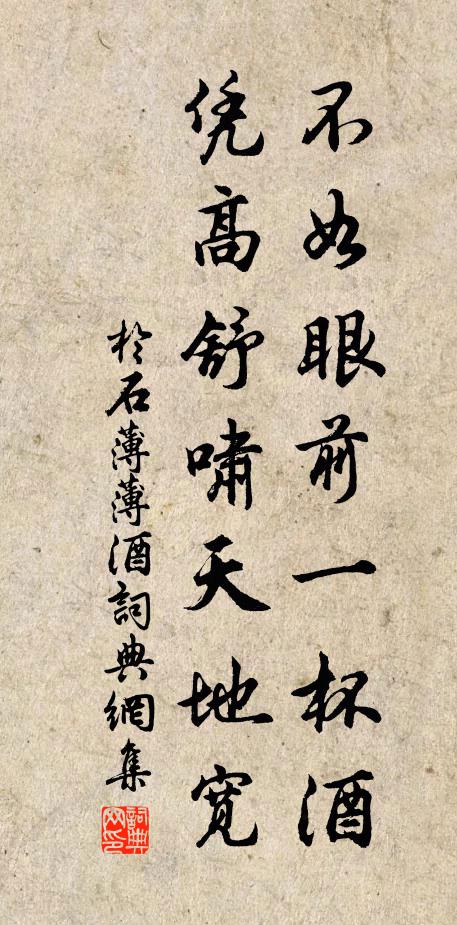 不如眼前一杯酒
凭高舒嘯天地寬
於石薄薄酒詞典網集
詞典网印